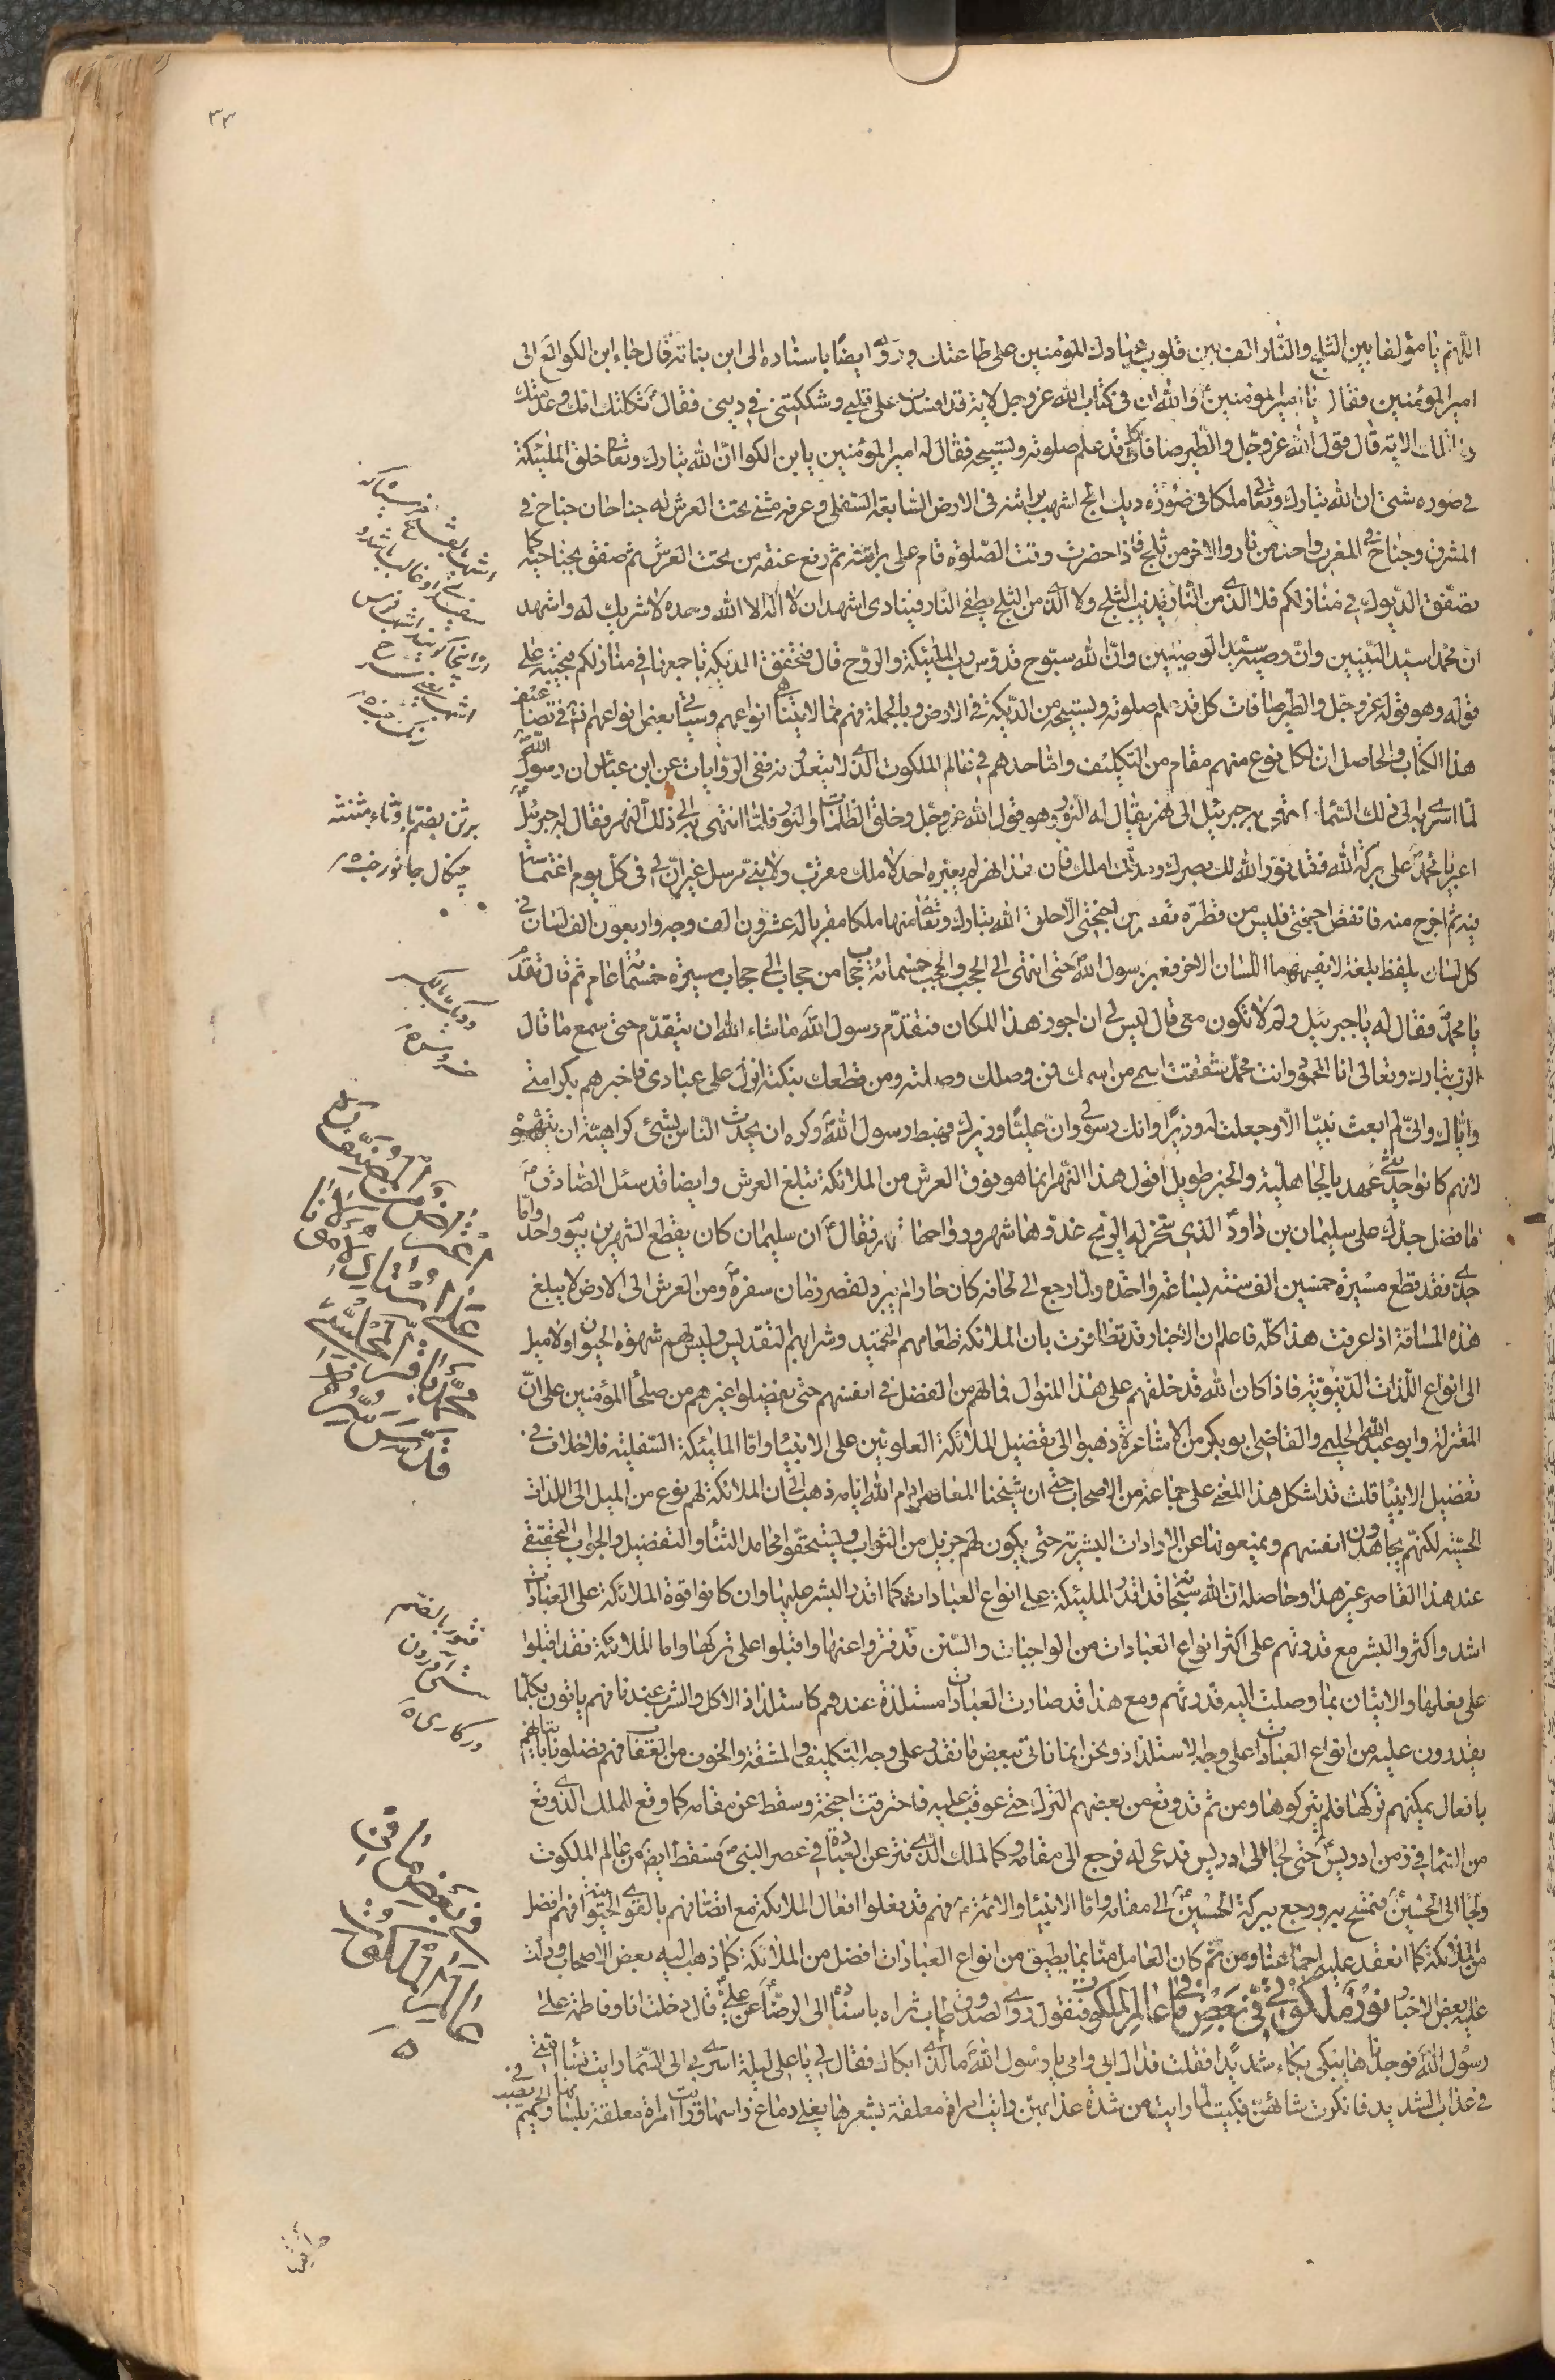 ٣٣
اللهم يا مؤلفا بين الثلج والنار الف بين قلوب عبادك المؤمنين على طاعتك وروى ايضا باسناده الى ابن بناته قال جاء ابن الكوا الى
امير المؤمنين فقال يا امير المؤمنين والله ان في كتاب الله عز وجل لاية قد افسدت على قلبي وشككتني في ديني فقال ثكلتك امك وعدمتك
وما تلك الاية قال قول الله عز وجل والطير صافات كل قد علم صلوته وتسبيحه فقال له امير المؤمنين يا بن الكوا ان الله تبارك وتعالى خلق الملئكة
في صوره شتى ان الله تبارك وتعالى ملكا في صورة ديك ابج اشهب براثنه في الارض السابعة السفلى وعرفه مثنى تحت العرش له جناحان جناح في
المشرق وجناح في المغرب واحد من نار والاخر من ثلج فاذا حضرت وقت الصلوة قام على براثنه ثم رفع عنقه من تحت العرش ثم صفق بجناحيه كما
تصفق الديوك في منازلكم فلا الذي من النار يذيب الثلج ولا الذي من الثلج يطفي النار فينادى اشهد ان لا اله الا الله وحده لا شريك له واشهد
ان محمدا سيد النبيين وان وصيه سيد الوصيين وان الله سبوح قدوس رب الملئيكة والروح قال فتخفق الديكه باجمعها في منازلكم فتجيبه على
قوله وهو قوله عز وجل والطير صافات كل قد علم صلوته وتسبيحه من الديكة في الارض وبالجملة فهم مما لا يتناهى انواعهم وسياتي بعض انواعهم انش في تضاعيف
هذا الكتاب والحاصل ان لكل نوع منهم مقام من التكليف واما حدهم في عالم الملكوت الذي لا يتعدونه ففى الروايات عن ابن عباس ان رسول الله
لما اسرى به الى ذلك السماء انتهى به جبرئيل الى نهر يقال له النور وهو قول الله عز وجل وخلق الظلمات والنور فلما انتهى به الى ذلك النهر فقال له جبرئيل
اعبر يا محمد على بركة الله فقد نور الله لك بصرك ومد لك امامك فان هذا نهر لم يعبره احد لا ملك مقرب ولا نبي مرسل غير ان لى في كل يوم اغتماسة
فيه ثم اخرج منه فانفض اجنحتى فليس من قطرة تقطر من اجنحتى الا خلق الله تبارك وتعالى منها ملكا مقربا له عشرون الف وجه واربعون الف لسان في
كل لسان يلفظ بلغة لا يفهمها اللسان الاخر فعبر رسول الله حتى انتهى الى الحجب والحجب خمسمائة حجاب من حجاب الى حجاب مسيرة خمسمائة عام ثم قال تقدم
يا محمد فقال له يا جبرئيل ولم لا تكون معى قال ليس لى ان اجوز هذا المكان فتقدم رسول الله ما شاء الله ان يتقدم حتى سمع ما قال
الرب تبارك وتعالى انا المحمود وانت محمد شققت اسمك من اسمى فمن وصلك وصلته ومن قطعك بتكته انزل على عبادى فاخبرهم بكرامتى
واياك وانى لم ابعث نبيا الا وجعلت له وزيرا وانك رسولى وان عليا وزيرك فهبط رسول الله وكره ان يحدث الناس بشئ كراهية ان يتهموه
لانهم كانوا حديثى عهد بالجاهلية والخبر طويل اقول هذا النهر انما هو فوق العرش من الملائكة تبلغ العرش وايضا قد سئل الصادق
ما فضل جدك على سليمان بن داود الذي سخر له الريح غدوها شهر ورواحها شهر فقال ان سليمان كان يقطع الشهرين بيوم واحد واما
جدى فقد قطع مسيرة خمسين الف سنة بساعة واحده ولما رجع الى لحافه كان حارا لم يبرد لقصر زمان سفره ومن العرش الى الارض لا يبلغ
هذه المسافة اذا عرفت هذا كله فاعلم ان الاخبار قد تظافرت بان الملائكة طعامهم التحميد وشرابهم التقديس وليس لهم شهوة الحيوان ولا ميل
الى انواع اللذات الدنيوية فاذا كان الله قد خلقهم على هذا المنوال فما لهم من الفضل في انفسهم حتى يفضلوا غيرهم من صلحاء المؤمنين على ان
المعتزلة وابو عبد الله الحليمى والقاضى ابو بكر من الاشاعرة ذهبوا الى تفضيل الملائكة العلويين على الانبياء واما الملئيكة السفلية فلا خلاف في
تفضيل الانبياء قلت قد اشكل هذا المعنى على جماعة من الاصحاب حتى ان شيخنا المعاصر ادام الله ايامه ذهب الى ان الملائكة لهم نوع من الميل الى اللذات
الحسية لكنهم يجاهدون انفسهم ويمنعونها عن الارادات البشرية حتى يكون لهم جزيل من الثواب ويستحقوا محامد الثناء والتفضيل والجواب الحقيقي
عند هذا القاصر غير هذا وحاصله ان الله سبحانه قد اقدر الملئيكة على انواع العبادات كما اقدر البشر عليها وان كانوا قوة الملائكة على العبادات
اشد واكثر والبشر مع قدرتهم على اكثر انواع العبادات من الواجبات والسنن قد فتروا عنها واقبلوا على تركها واما الملائكة فقد اقبلوا
على فعلها والاتيان بما وصلت اليه قدرتهم ومع هذا قد صارت العبادات مستلذة عندهم كاستلذاذ الاكل والشرب عندنا فهم ياتون بكلما
يقدرون عليه من انواع العبادات على وجه الاستلذاذ ونحن انما ناتى ببعض ما نقدر على وجه التكليف والمشقة والخوف من العقاب فهم يفضلونا باتيانهم
بافعال يمكنهم تركها فلم يتركوها ومن ثم قد وقع من بعضهم الترك حتى عوقب عليه فاحترقت اجنحته وسقط عن مقامه كما وقع للملك الذي وقع
من السماء في زمن ادريس حتى لجا الى ادريس فدعى له فرجع الى مقامه وكالملك الذي فتر عن العبادة في عصر النبى فسقط ايضا من عالم الملكوت
ولجا الى الحسين فتمسح به ورجع ببركة الحسين الى مقامه واما الانبياء والائمة فهم قد فعلوا افعال الملائكة مع اتصافهم بالقوى الحيوانية فهم افضل
من الملائكة كما انعقد عليه اجماعنا ومن ثم كان العامل منا بما يطيق من انواع العبادات افضل من الملائكة كما ذهب اليه بعض الاصحاب ودلت
عليه بعض الاخبار نور ملكوتى في بعض ما في عالم الملكوت فنقول روى الصدوق طاب ثراه باسناده الى الرضا عن على قال دخلت انا وفاطمة على
رسول الله فوجدناه يبكى بكاء شديدا فقلت فداك ابى وامى يا رسول الله ما الذي ابكاك فقال لى يا على ليلة اسرى بى الى السماء رايت نساء امتى
في عذاب الشديد فانكرت شانهن فبكيت لما رايت من شدة عذابهن رايت امراة معلقة بشعرها يغلى دماغ راسها ورايت امراة معلقة بلسانها والحميم يصب في
برثن بضم با وثاء مثلثه
چنكال جانور
فتور بالضم
سستى آوردن
در كارى
في بعض ما في
عالم الملكوت